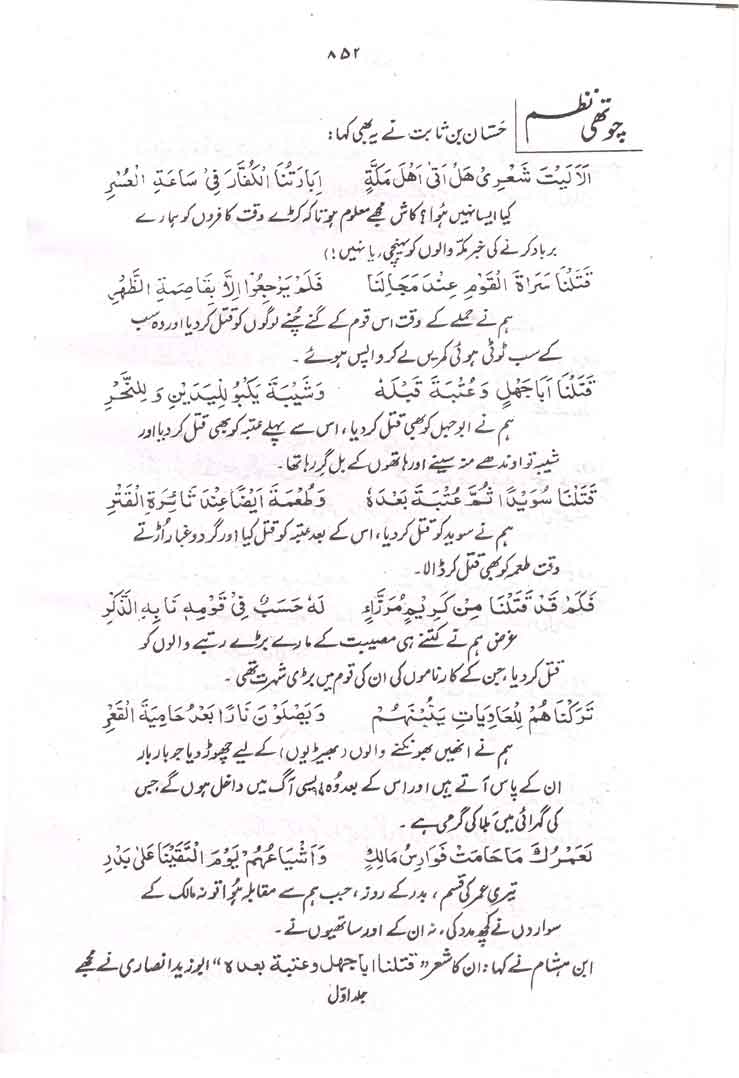 ۸۵۲
چوتھی نظم
حسّان بن ثابت نے یہ بھی کہا :
اَلَا لَيْتَ شَعْرِىْ هَلْ اَتٰى اَهْلَ مَكَّةٍ اِبَادَتُنَا الْكُفَّارَ فِىْ سَاعَةِ الْعُسْرِ
کیا ایسا نہیں ہُوا؟ کاش مجھے معلوم ہوتا کہ کڑے وقت کافروں کو ہمارے
برباد کرنے کی خبر مکّہ والوں کو پہنچی (یا نہیں!)
قَتَلْنَا سَرَاةَ الْقَوْمِ عِنْدَ مَجَالِنَا فَلَمْ يَرْجِعُوْا اِلَّا بِقَاصِمَةِ الظَّهْرِ
ہم نے حملے کے وقت اس قوم کے گنے چُنے لوگوں کو قتل کر دیا اور وہ سب
کے سب ٹوٹی ہوئی کمریں لے کر واپس ہوئے ۔
قَتَلْنَا اَبَا جَهْلٍ وَعُتْبَةَ قَبْلَهٗ وَشَيْبَةَ يَكْبُوْ لِلْيَدَيْنِ وَلِلنَّحْرِ
ہم نے ابوجہل کو بھی قتل کر دیا ، اس سے پہلے عتبہ کو بھی قتل کر دیا اور
شیبہ تو اوندھے منہ سینے اور ہاتھوں کے بل گر رہا تھا ۔
قَتَلْنَا سُوَيْدًا ثُمَّ عُتْبَةَ بَعْدَهٗ وَطُعْمَةَ اَيْضًا عِنْدَ ثَائِرَةِ الْقَتْرِ
ہم نے سوید کو قتل کر دیا ، اس کے بعد عتبہ کو قتل کیا اور گرد و غبار اُڑتے
وقت طعمہ کو بھی قتل کر ڈالا ۔
فَكَمْ قَدْ قَتَلْنَا مِنْ كَرِيْمٍ مُرَزَّاءٍ لَهٗ حَسَبٌ فِىْ قَوْمِهٖ نَابِهِ الذِّكْرِ
غرض ہم نے کتنے ہی مصیبت کے مارے بڑے رتبے والوں کو
قتل کر دیا ، جن کے کارناموں کی ان کی قوم میں بڑی شہرت تھی ۔
تَرَكْنَاهُمْ لِلْعَادِيَاتِ يَنُبْنَهُمْ وَيَصْلَوْنَ نَارًا بَعْدُ حَامِيَةَ الْقَعْرِ
ہم نے انھیں بھونکنے والوں (بھیڑیوں) کے لیے چھوڑ دیا جو بار بار
ان کے پاس آتے ہیں اور اس کے بعد وُہ ایسی آگ میں داخل ہوں گے جس
کی گہرائی میں بلا کی گرمی ہے ۔
لَعَمْرُكَ مَا حَامَتْ فَوَارِسُ مَالِكٍ وَاَشْيَاعُهُمْ يَوْمَ الْتَقَيْنَا عَلٰى بَدْرِ
تیری عمر کی قسم ، بدر کے روز ، جب ہم سے مقابلہ ہُوا تو نہ مالک کے
سواروں نے کچھ مدد کی ، نہ ان کے اور ساتھیوں نے ۔
ابن ہشام نے کہا : ان کا شعر "قتلنا ابا جهل وعتبة بعده" ابو زید انصاری نے مجھے
جلد اوّل